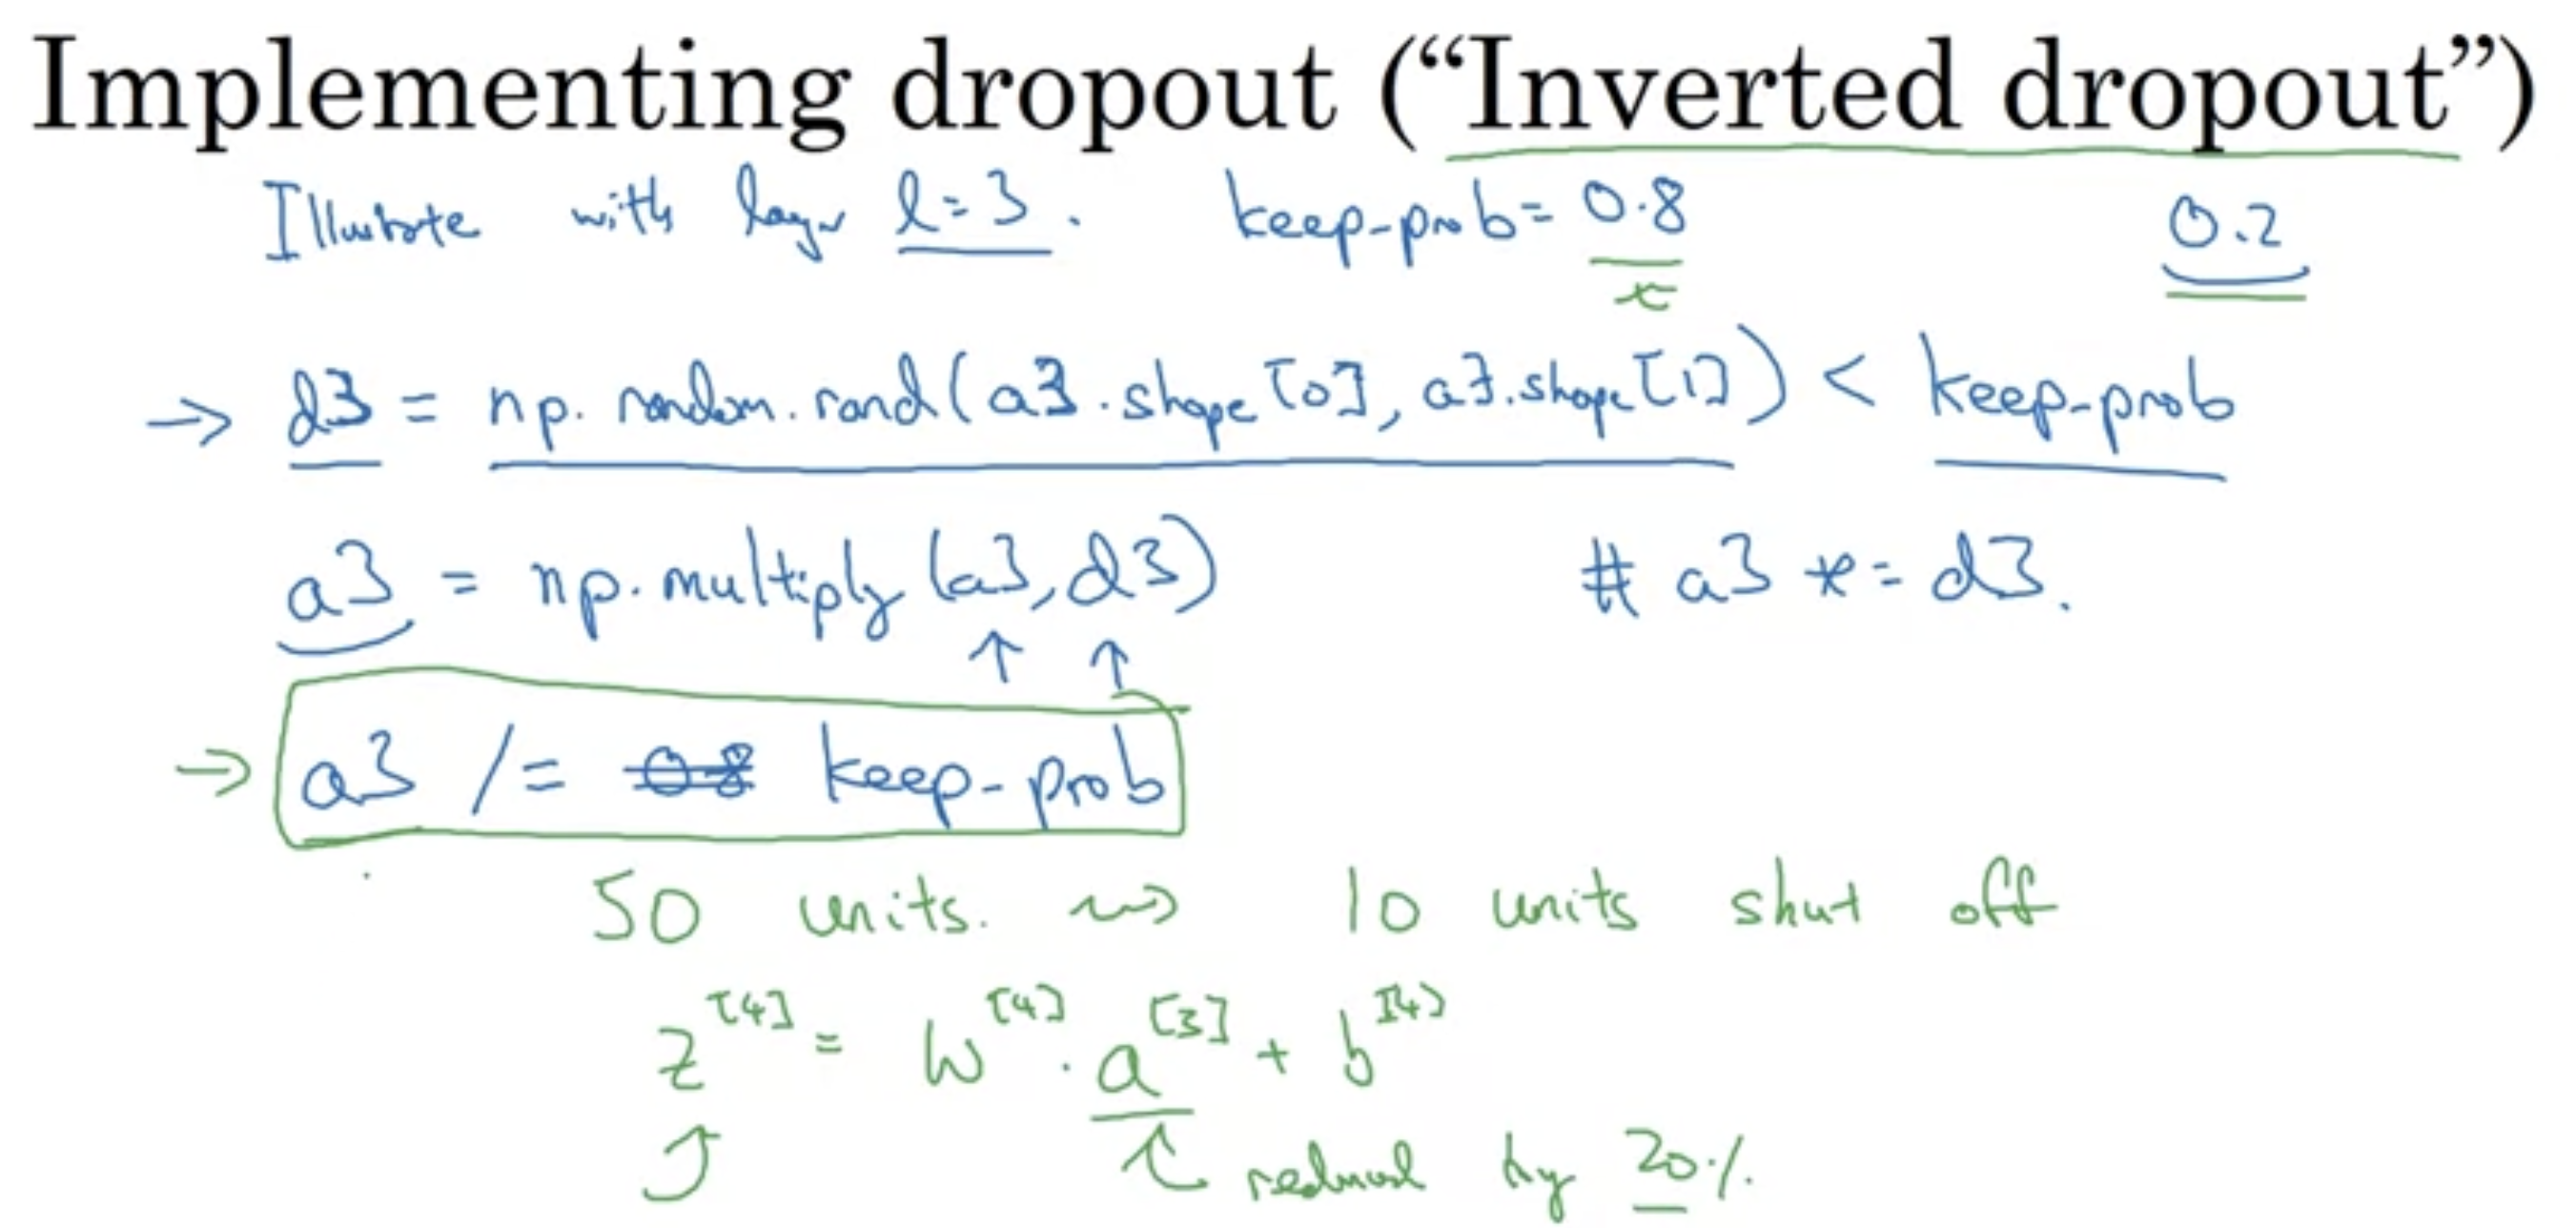 Implementing dropout (“Inverted dropout”)
Illustrate with layer l=3. keep-prob= 0.8 0.2
→ d3 = np.random.rand(a3.shape[0], a3.shape[1]) < keep-prob
a3 = np.multiply(a3, d3) # a3 *= d3.
→ a3 /= 0.8 keep-prob
50 units. ⇝ 10 units shut off
z^[4] = W^[4] · a^[3] + b^[4]
reduced by 20%.